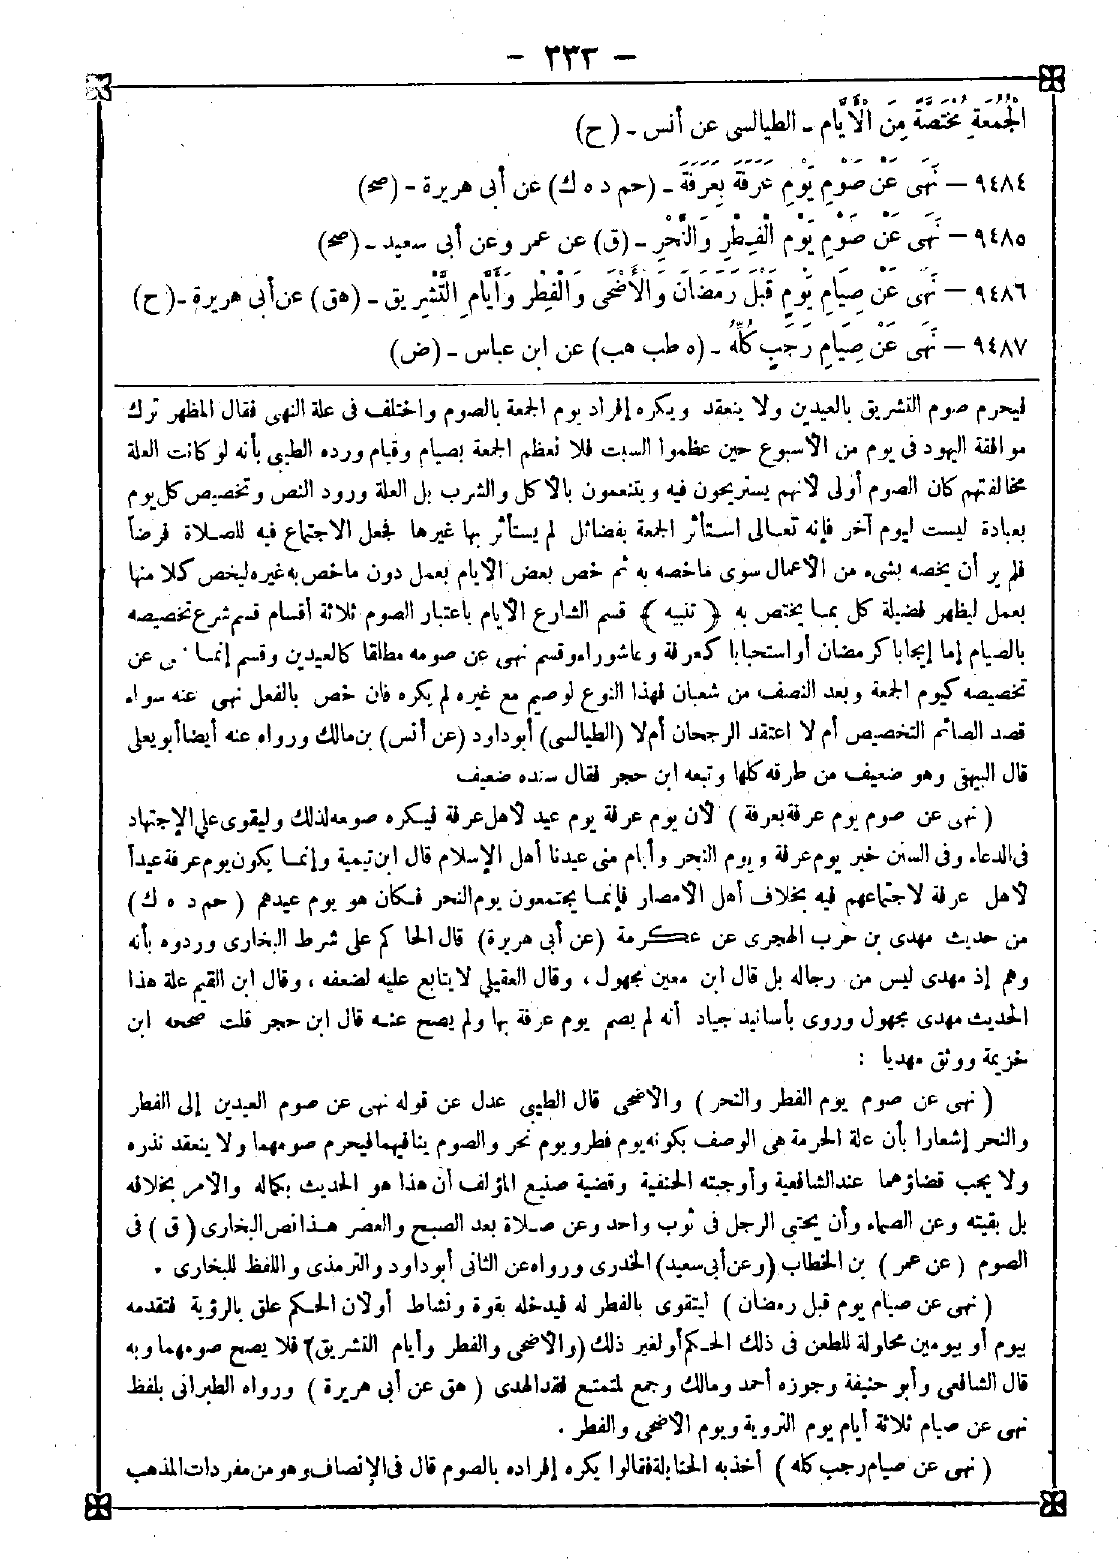 - ٣٣٣ -
الْجُمُعَةِ مُخْتَصَّةً مِنَ الْأَيَّامِ - الطيالسى عن أنس - (ح)
٩٤٨٤ - نَهَى عَنْ صَوْمِ يَوْمِ عَرَفَةَ بِعَرَفَةَ - (حم د ه ك) عن أبى هريرة - (صح)
٩٤٨٥ - نَهَى عَنْ صَوْمِ يَوْمِ الْفِطْرِ وَالنَّحْرِ - (ق) عن عمر وعن أبى سعيد - (صح)
٩٤٨٦ - نَهَى عَنْ صِيَامِ يَوْمٍ قَبْلَ رَمَضَانَ وَالْأَضْحَى وَالْفِطْرِ وَأَيَّامِ التَّشْرِيقِ - (هق) عن أبى هريرة - (ح)
٩٤٨٧ - نَهَى عَنْ صِيَامِ رَجَبٍ كُلِّهِ - (ه طب هب) عن ابن عباس - (ض)
فيحرم صوم التشريق بالعيدين ولا ينعقد ويكره إفراد يوم الجمعة بالصوم واختلف فى علة النهى فقال المظهر ترك
موافقة اليهود فى يوم من الأسبوع حين عظموا السبت فلا نعظم الجمعة بصيام وقيام ورده الطيبى بأنه لو كانت العلة
مخالفتهم كان الصوم أولى لأنهم يستريحون فيه ويتنعمون بالأكل والشرب بل العلة ورود النص وتخصيص كل يوم
بعبادة ليست ليوم آخر فإنه تعالى استأثر الجمعة بفضائل لم يستأثر بها غيرها فجعل الاجتماع فيه للصلاة فرضاً
فلم ير أن يخصه بشىء من الأعمال سوى ماخصه به ثم خص بعض الأيام بعمل دون ماخص به غيره ليخص كلا منها
بعمل ليظهر فضيلة كل بما يختص به ﴿ تنبيه ﴾ قسم الشارع الأيام باعتبار الصوم ثلاثة أقسام قسم شرع تخصيصه
بالصيام إما إيجابا كرمضان أو استحبابا كعرفة وعاشوراء وقسم نهى عن صومه مطلقا كالعيدين وقسم إنما نهى عن
تخصيصه كيوم الجمعة وبعد النصف من شعبان فهذا النوع لو صيم مع غيره لم يكره فان خص بالفعل نهى عنه سواء
قصد الصائم التخصيص أم لا اعتقد الرجحان أم لا (الطيالسى) أبو داود (عن أنس) بن مالك ورواه عنه أيضا أبو يعلى
قال البيهقى وهو ضعيف من طرقه كلها وتبعه ابن حجر فقال سنده ضعيف
( نهى عن صوم يوم عرفة بعرفة ) لأن يوم عرفة يوم عيد لأهل عرفة فيكره صومه لذلك وليقوى على الاجتهاد
فى الدعاء وفى السنن خبر يوم عرفة ويوم النحر وأيام منى عيدنا أهل الإسلام قال ابن تيمية وإنما يكون يوم عرفة عيداً
لأهل عرفة لاجتماعهم فيه بخلاف أهل الأمصار فإنما يجتمعون يوم النحر فكان هو يوم عيدهم ( حم د ه ك)
من حديث مهدى بن حرب الهجرى عن عكرمة (عن أبى هريرة) قال الحاكم على شرط البخارى وردوه بأنه
وهم إذ مهدى ليس من رجاله بل قال ابن معين مجهول ، وقال العقيلى لا يتابع عليه لضعفه ، وقال ابن القيم علة هذا
الحديث مهدى مجهول وروى بأسانيد جياد أنه لم يصم يوم عرفة بها ولم يصح عنه قال ابن حجر قلت صححه ابن
خزيمة ووثق مهديا :
( نهى عن صوم يوم الفطر والنحر ) والأضحى قال الطيبى عدل عن قوله نهى عن صوم العيدين إلى الفطر
والنحر إشعارا بأن علة الحرمة هى الوصف بكونه يوم فطر ويوم نحر والصوم ينافيهما فيحرم صومهما ولا ينعقد نذره
ولا يجب قضاؤهما عند الشافعية وأوجبته الحنفية وقضية صنيع المؤلف أن هذا هو الحديث بكماله والأمر بخلافه
بل بقيته وعن الصماء وأن يحتبى الرجل فى ثوب واحد وعن صلاة بعد الصبح والعصر هذا نص البخارى ( ق ) فى
الصوم ( عن عمر ) بن الخطاب (وعن أبى سعيد) الخدرى ورواه عن الثانى أبو داود والترمذى واللفظ للبخارى .
( نهى عن صيام يوم قبل رمضان ) ليتقوى بالفطر له فيدخله بقوة ونشاط أو لان الحكم علق بالرؤية فتقدمه
بيوم أو بيومين محاولة للطعن فى ذلك الحكم أو لغير ذلك (والأضحى والفطر وأيام التشريق) فلا يصح صومهما وبه
قال الشافعى وأبو حنيفة وجوزه أحمد ومالك وجمع لمتمتع فقد الهدى ( هق عن أبى هريرة ) ورواه الطبرانى بلفظ
نهى عن صيام ثلاثة أيام يوم التروية ويوم الأضحى والفطر .
( نهى عن صيام رجب كله ) أخذ به الحنابلة فقالوا يكره إفراده بالصوم قال فى الإنصاف وهو من مفردات المذهب